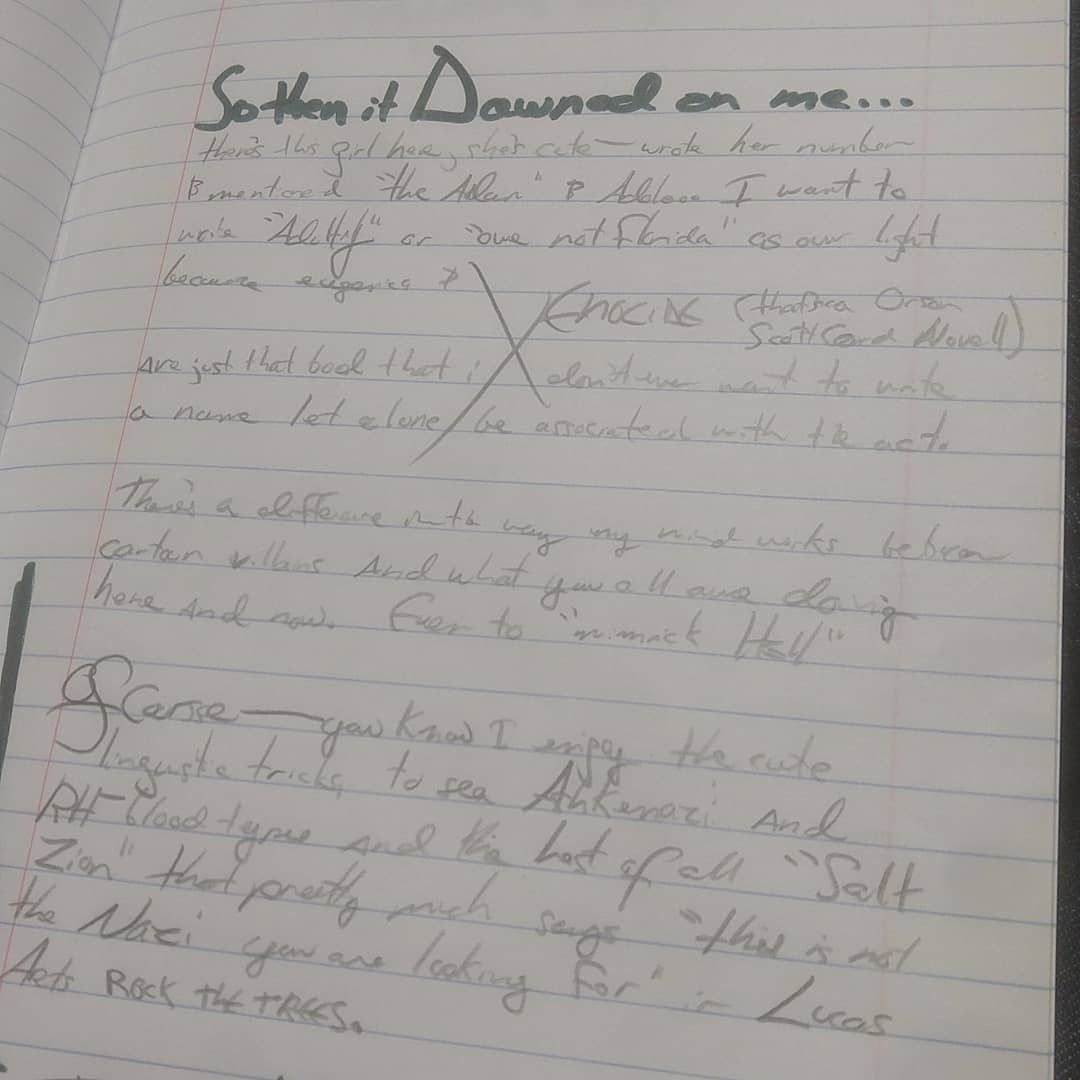 So then it Dawned on me...
there's this girl here, she's cute — wrote her number
mentioned "the Adan" I want to
write or "owe not florida" as our light
because eugenics
Xenocide (thats a Orson
Scott Card Novell)
Are just that bad that i don't ever want to write
a name let alone be associated with the act.
There's a difference in the way my mind works between
certain villans And what you all are doing
here And now. Even to "mimmick Hell"
Of Carse — you know I enjoy the cute
lingustic tricks, to sea Ahkenazi And
RH- blood types And the best of all "Salt
Zion" that preatty much says "this is not
the Nazi you are looking for" in Lucas
Acts ROCK THE TREES.